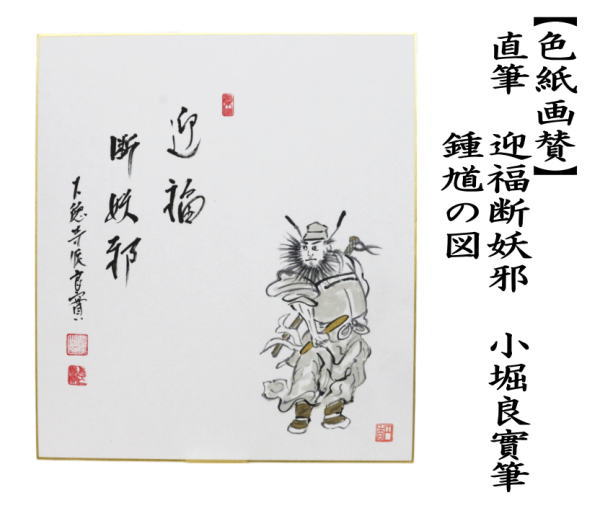 【色紙画賛】
直筆 迎福断妖邪 小堀良實筆
鍾馗の図
迎福
断妖邪
大徳寺派良實